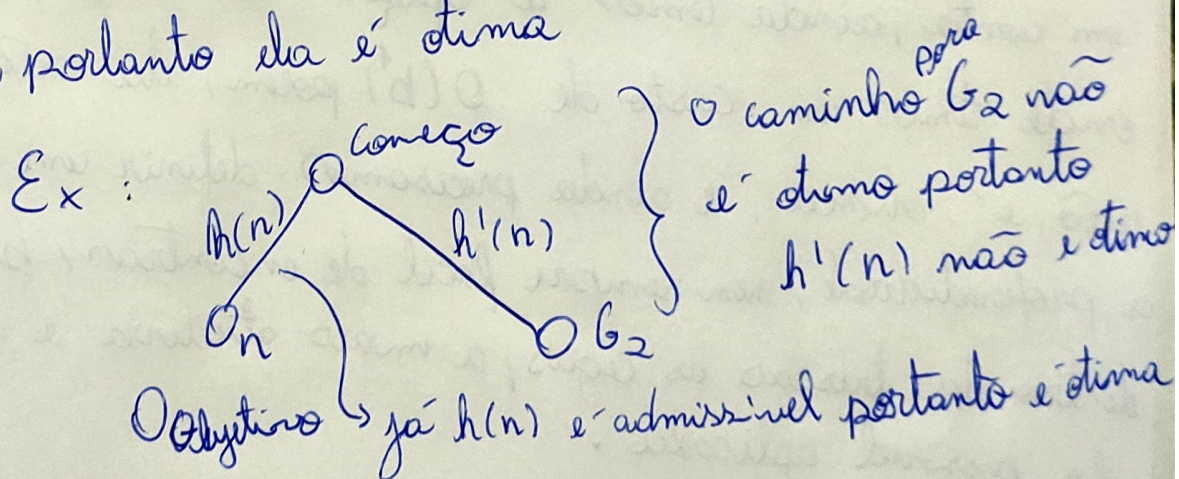 portanto ela é ótima
Ex :
começo
h(n)
h'(n)
n
G2
Objetivo
O caminho para G2 não
é ótimo portanto
h'(n) não é ótimo
já h(n) é admissível portanto é ótima